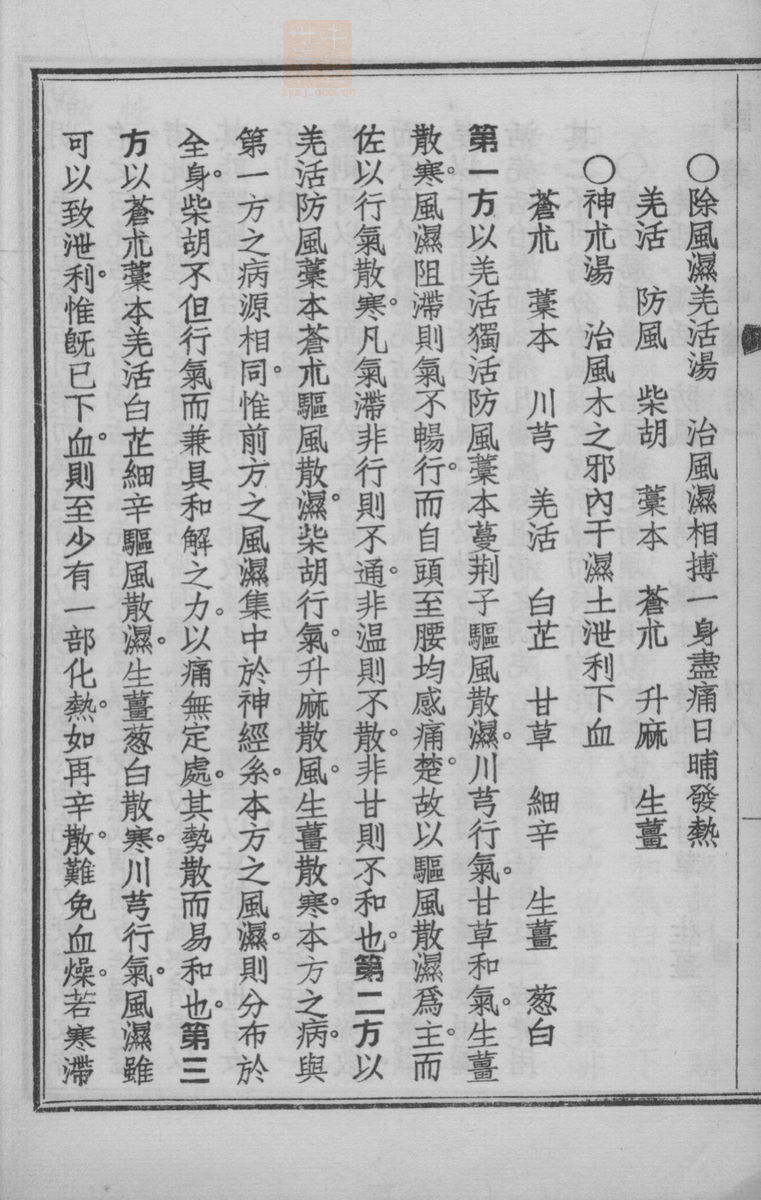 ○除風濕羌活湯　治風濕相搏一身盡痛日晡發熱
羌活　防風　柴胡　藁本　蒼朮　升麻　生薑
○神朮湯　治風木之邪內干濕土泄利下血
蒼朮　藁本　川芎　羌活　白芷　甘草　細辛　生薑　葱白
第一方以羌活獨活防風藁本蔓荆子驅風散濕。川芎行氣。甘草和氣。生薑
散寒。風濕阻滯則氣不暢行。而自頭至腰均感痛楚。故以驅風散濕爲主。而
佐以行氣散寒。凡氣滯非行則不通。非温則不散。非甘則不和也。第二方以
羌活防風藁本蒼朮驅風散濕。柴胡行氣。升麻散風。生薑散寒。本方之病。與
第一方之病源相同。惟前方之風濕集中於神經系。本方之風濕。則分布於
全身。柴胡不但行氣而兼具和解之力。以痛無定處。其勢散而易和也。第三
方以蒼朮藁本羌活白芷細辛驅風散濕。生薑葱白散寒。川芎行氣。風濕雖
可以致泄利。惟旣已下血。則至少有一部化熱。如再辛散。難免血燥。若寒滯
zysj.com.cn